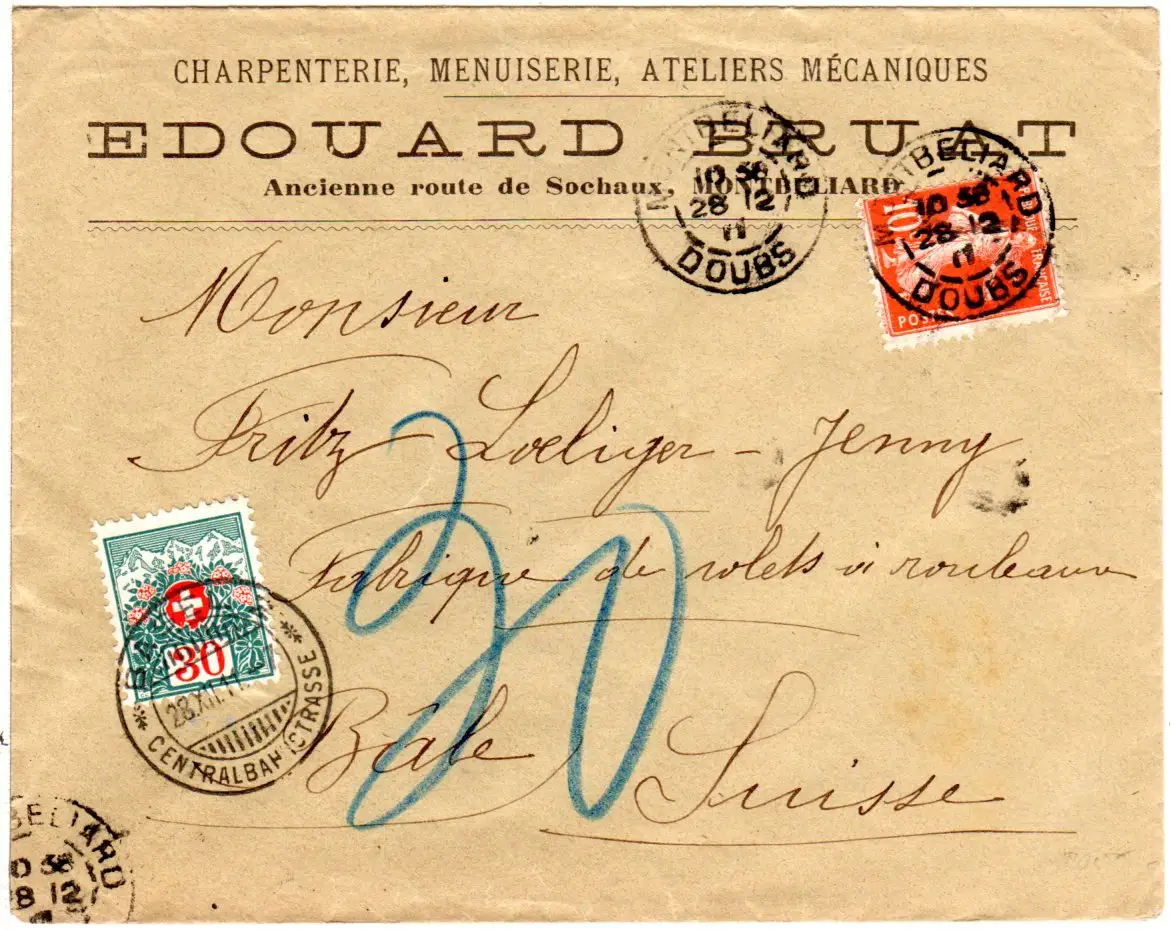 CHARPENTERIE, MENUISERIE, ATELIERS MÉCANIQUES
EDOUARD BRUAT
Ancienne route de Sochaux, MONTBÉLIARD
MONTBELIARD
10 38
28 12
11
DOUBS
MONTBELIARD
10 38
28 12
11
DOUBS
10
FRANÇAISE
POSTES
Monsieur
Fritz Loeliger - Jenny
Fabrique de volets à rouleaux
Bâle Suisse
30
30
28.XII.11
CENTRALBAHNSTRASSE
BELIARD
10 38
28 12